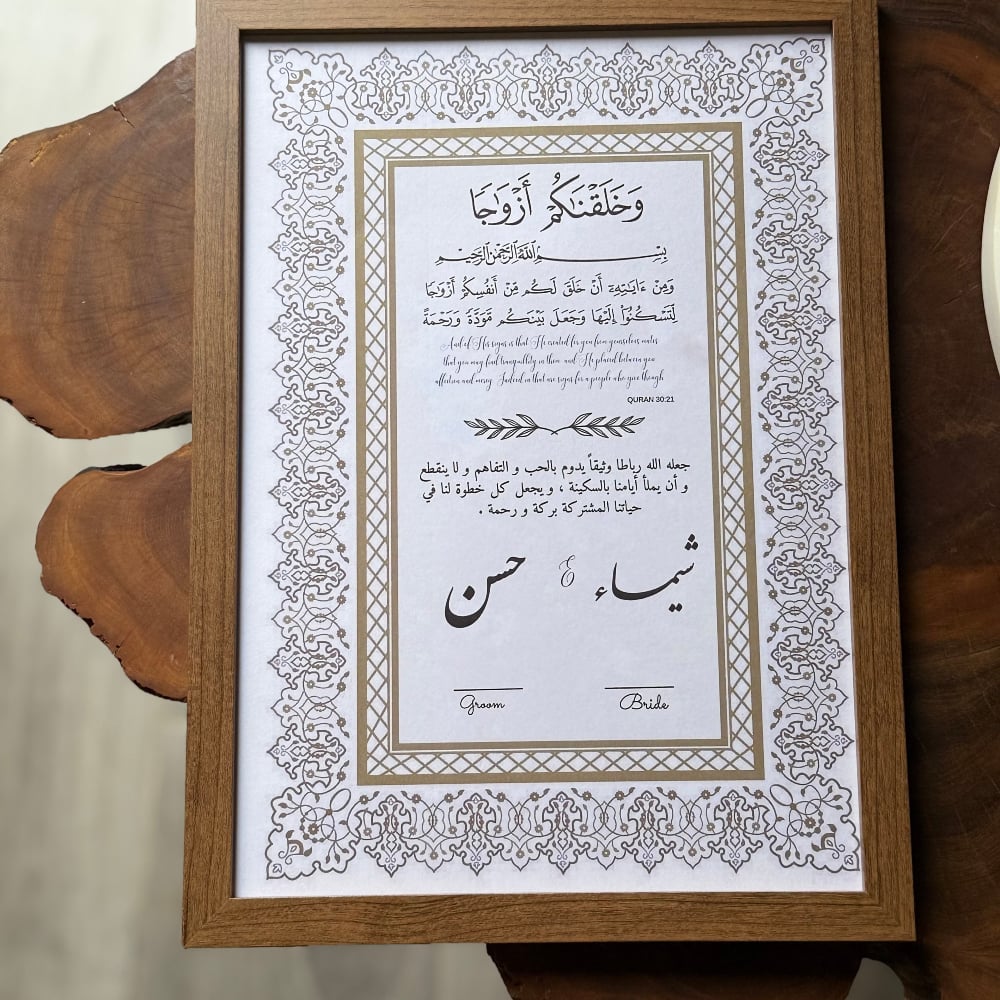 وَخَلَقْنَاكُمْ أَزْوَاجًا
بِسْمِ اللَّهِ الرَّحْمَٰنِ الرَّحِيمِ
وَمِنْ ءَايَٰتِهِۦٓ أَنْ خَلَقَ لَكُم مِّنْ أَنفُسِكُمْ أَزْوَٰجًا
لِّتَسْكُنُوٓا۟ إِلَيْهَا وَجَعَلَ بَيْنَكُم مَّوَدَّةً وَرَحْمَةً
And of His signs is that He created for you from yourselves mates
that you may find tranquility in them and He placed between you
affection and mercy. Indeed in that are signs for a people who give though
QURAN 30:21
جعله الله رباطا وثيقاً يدوم بالحب و التفاهم و لا ينقطع
و أن يملأ أيامنا بالسكينة ، و يجعل كل خطوة لنا في
حياتنا المشتركة بركة و رحمة .
شيماء & حسن
Groom Bride